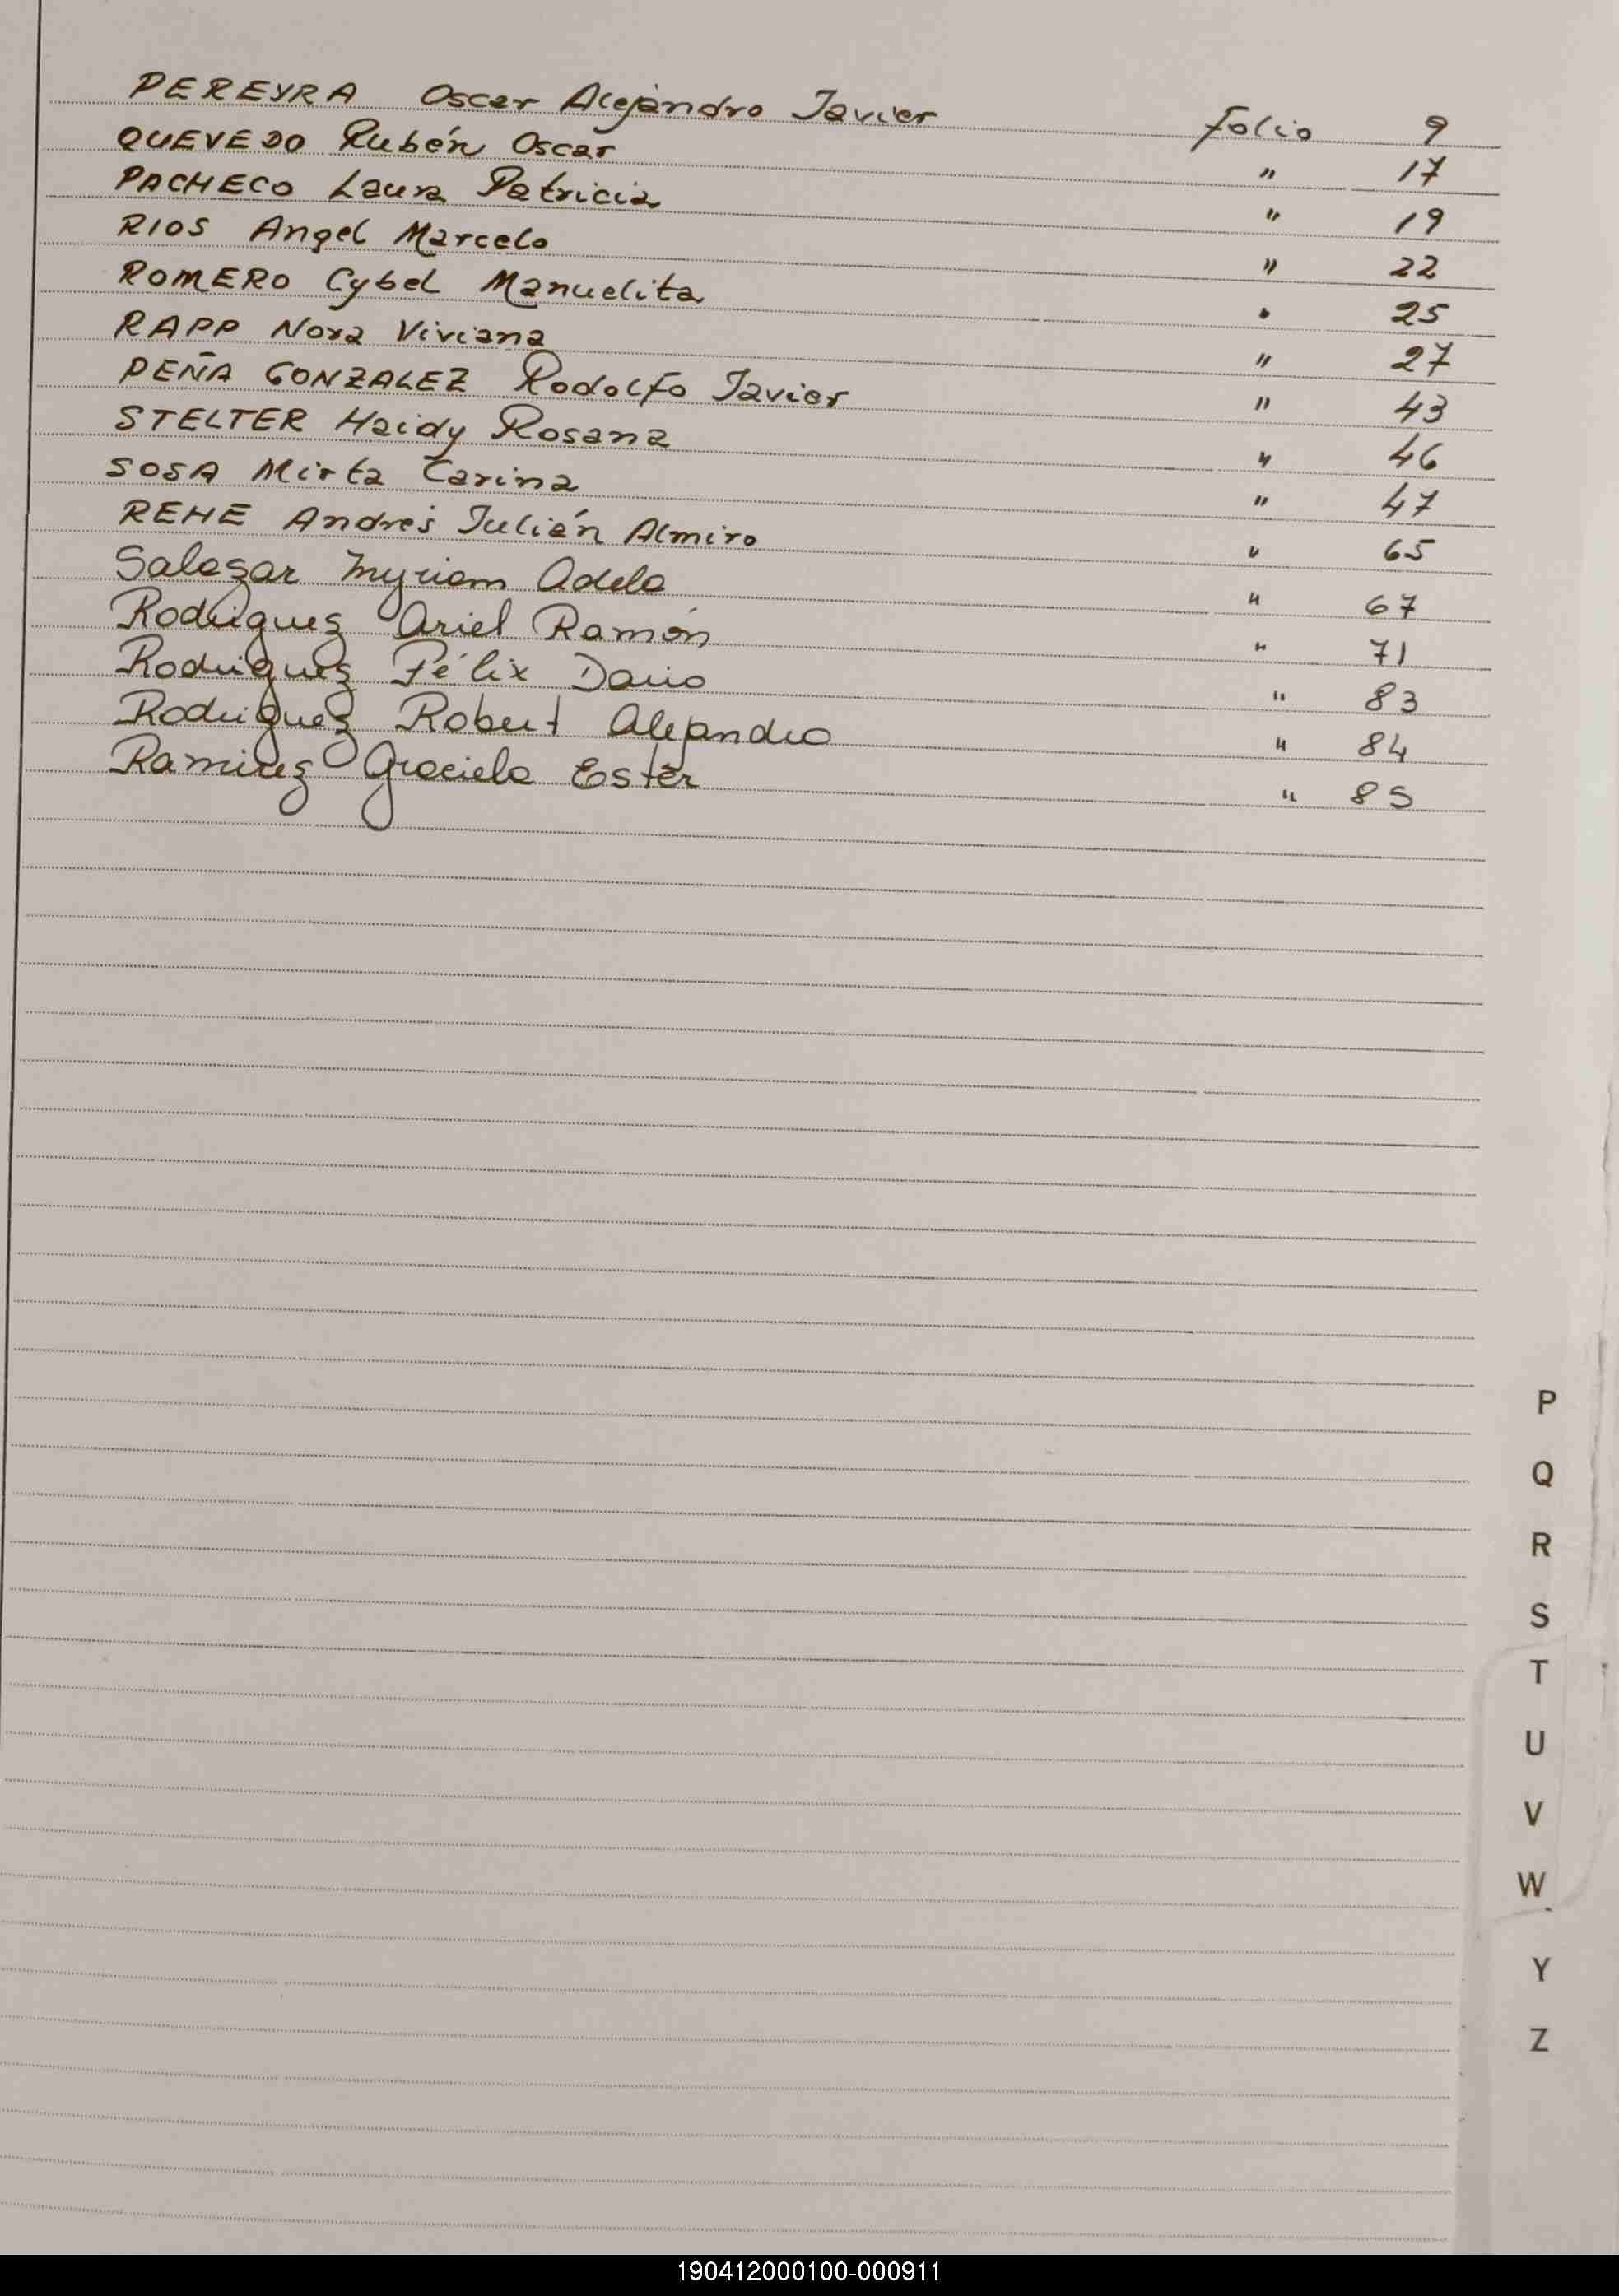 PEREYRA Oscar Alejandro Javier folio 9
QUEVEDO Rubén Oscar " 17
PACHECO Laura Patricia " 19
RIOS Angel Marcelo " 22
ROMERO Cybel Manuelita " 25
RAPP Nora Viviana " 27
PEÑA GONZALEZ Rodolfo Javier " 43
STELTER Haidy Rosana " 46
SOSA Mirta Carina " 47
REHE Andrés Julián Almiro " 65
Salazar Myriam Adela " 67
Rodriguez Ariel Ramón " 71
Rodriguez Félix Dario " 83
Rodriguez Robert Alejandro " 84
Ramirez Graciela Ester " 85
P
Q
R
S
T
U
V
W
Y
Z
190412000100-000911